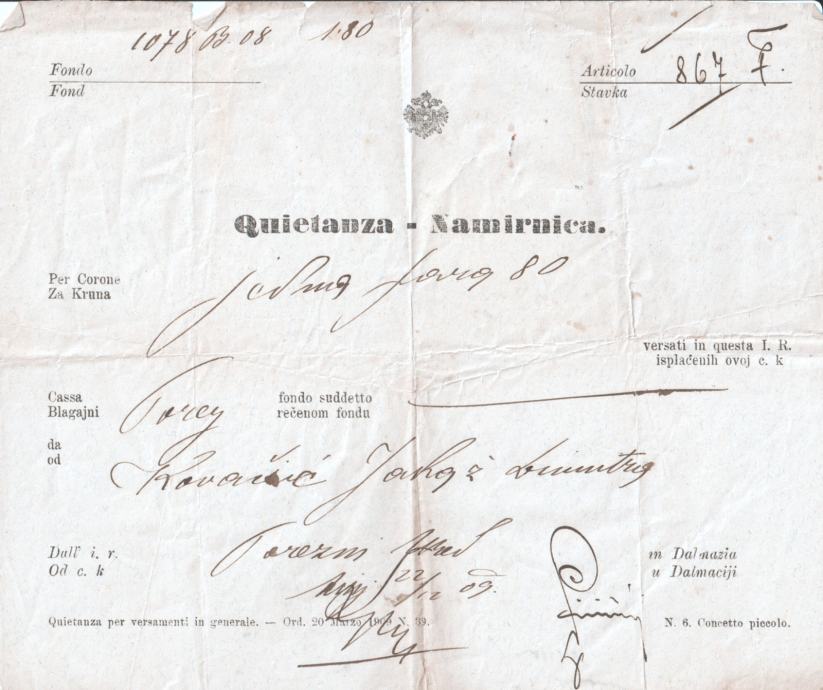 1078 B. 08 1·80
Fondo
Fond
Articolo
Stavka
867 F.
Quietanza - Namirnica.
Per Corone
Za Kruna
jedna para 80
versati in questa I. R.
isplaćenih ovoj c. k
Cassa
Blagajni
fondo suddetto
rečenom fondu
da
od
Kovačić Jakov
Dall' i. r.
Od c. k
Porezni Ured
22/12 09.
in Dalmazia
u Dalmaciji
Quietanza per versamenti in generale. — Ord. 20 Marzo 1909 N. 39.
N. 6. Concetto piccolo.